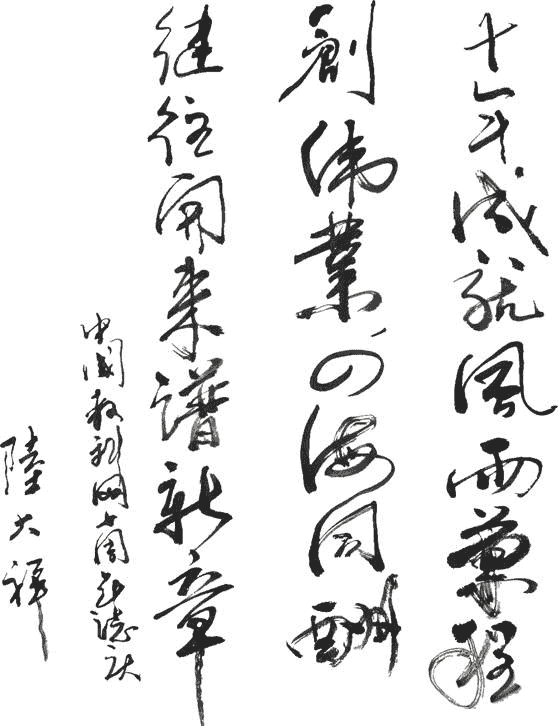 十年成就風雨兼程
創偉業四海同酬
继往開来譜新章
中國網十周年誌庆
陸大祥